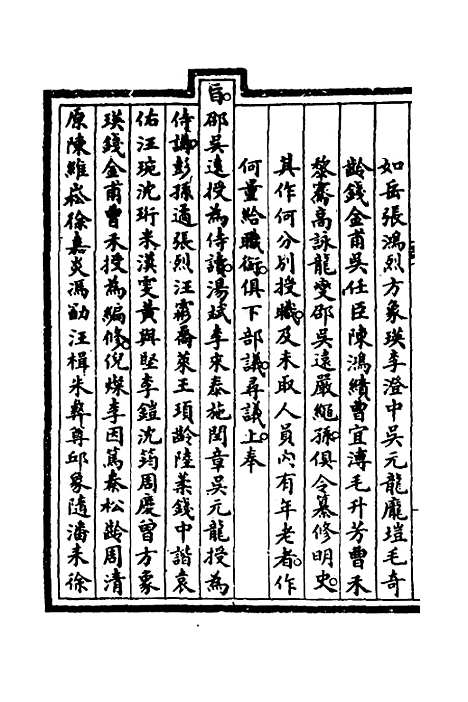 如岳張鴻烈方象瑛李澄中吳元龍龐塏毛奇
齡錢金甫吳任臣陳鴻績曹宜溥毛升芳曹禾
黎騫高詠龍燮邵吳遠嚴繩孫俱令纂修明史
其作何分別授職及未取人員內有年老者作
何量給職銜俱下部議尋議上奉
旨邵吳遠授為侍讀湯斌李來泰施閏章吳元龍授為
侍講彭孫遹張烈汪霦喬萊王頊齡陸葇錢中諧袁
佑汪琬沈珩米漢雯黃與堅李鎧沈筠周慶曾方象
瑛錢金甫曹禾授為編修倪燦李因篤秦松齡周清
原陳維崧徐嘉炎馮勖汪楫朱彝尊邱象隨潘耒徐